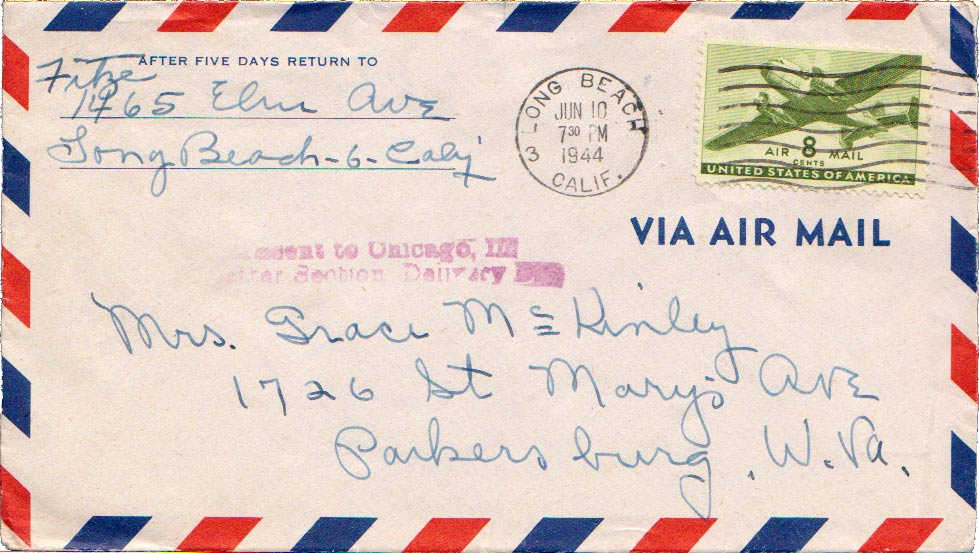 AFTER FIVE DAYS RETURN TO
Fitze
1465 Elm Ave
Long Beach-6-Calif
LONG BEACH
JUN 10
7 30 PM
1944
3 CALIF.
AIR 8 MAIL
CENTS
UNITED STATES OF AMERICA
VIA AIR MAIL
to Chicago, Ill
Section Delivery
Mrs. Grace McKinley
1726 St Mary's Ave
Parkersburg, W. Va.